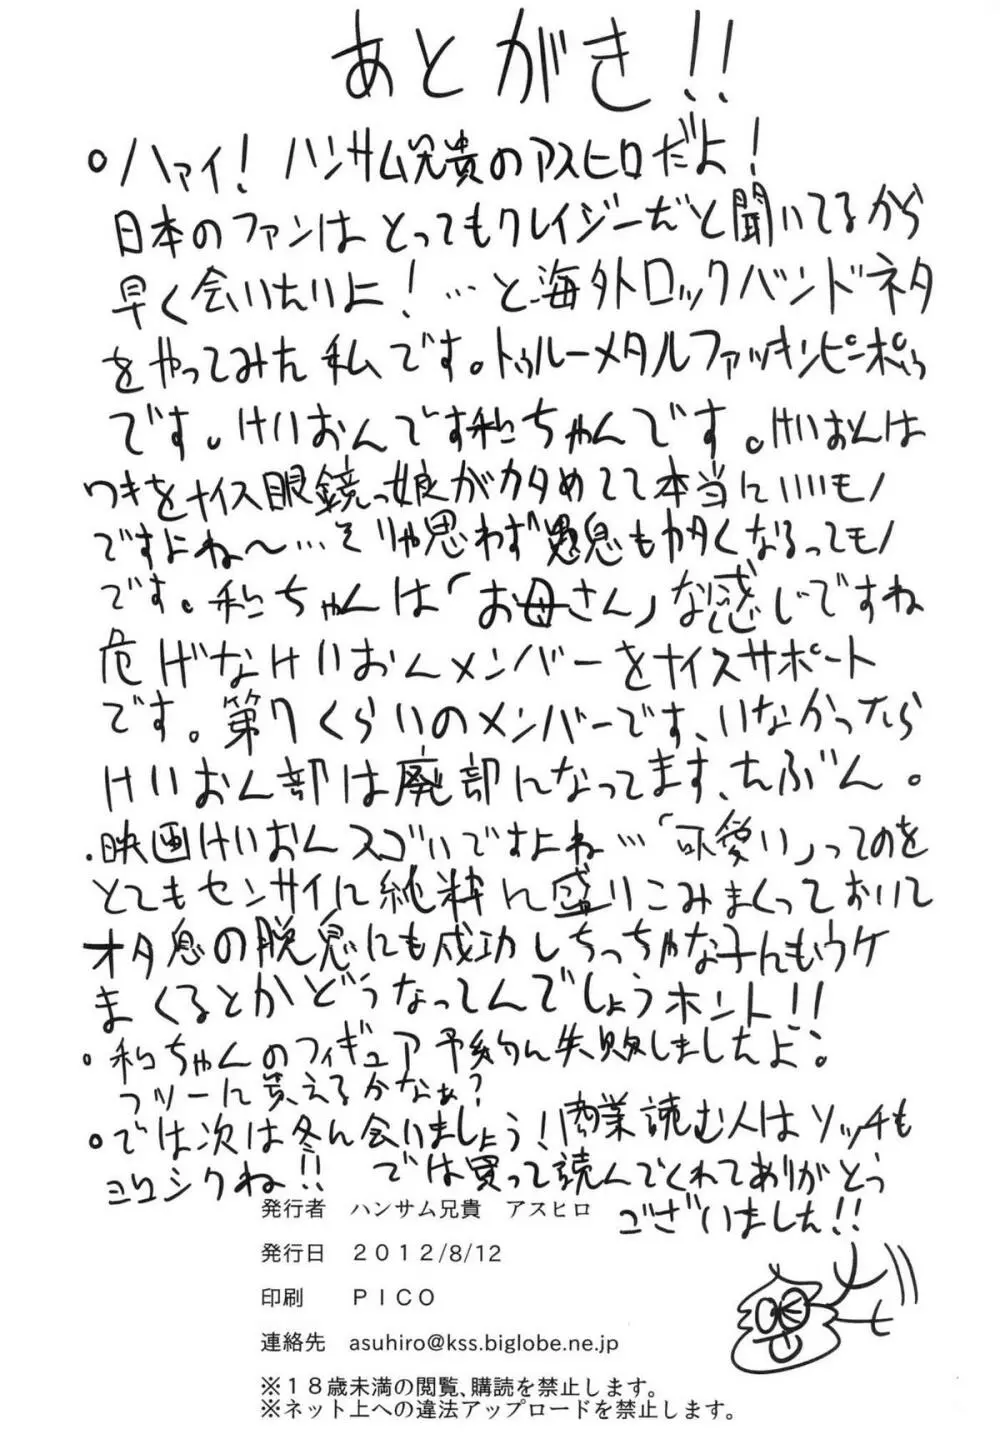 あとがき!!
○ハァイ!ハンサム兄貴のアスヒロだよ!
日本のファンはとってもクレイジーだと聞いてるから
早く会いたいよ!…と海外ロックバンドネタ
をやってみた私です。トゥルーメタルファッキンピンポゥ
です。けいおんです和ちゃんです。けいおんは
ワキをナイス眼鏡っ娘がカタめてて本当にいいモノ
ですよね~…そりゃ思わず愚息もカタくなるってモノ
です。和ちゃんは「お母さん」な感じですね
危げなけいおんメンバーをナイスサポート
です。第7くらいのメンバーです、いなかったら
けいおん部は廃部になってます、たぶん。
・映画けいおんスゴいですよね…「可愛い」ってのを
とてもセンサイに純粋に盛りこみまくっておいて
オタ息の脱息にも成功しちっちゃな子にもウケ
まくるとかどうなってんでしょうホント!!
○和ちゃんのフィギュア予約に失敗しましたよ。
フツーに買えるかなぁ?
○では次は冬に会いましょう!!商業読む人はソッチも
ヨロシクね!! では買って読んでくれてありがとう
ございました!!
発行者 ハンサム兄貴 アスヒロ
発行日 2012/8/12
印刷 PICO
連絡先 asuhiro@kss.biglobe.ne.jp
※18歳未満の閲覧、購読を禁止します。
※ネット上への違法アップロードを禁止します。